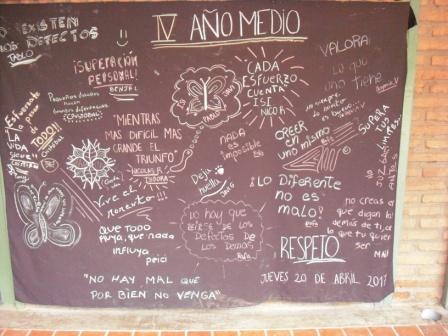 IV AÑO MEDIO
EXISTEN
LOS DEFECTOS
¡SUPERACIÓN
PERSONAL!
BENJA
Pequeños
hacen
grandes diferencias
CRISTOBAL
CADA
ESFUERZO
CUENTA
ISI
NICO R
VALORA
Lo que
uno tiene
ESfuerzate
TODO!!
"MIENTRAS
MAS DIFICIL MAS
GRANDE EL
TRIUNFO"
NICOLAS R
NADA
es
imposible
CREER
en
uno mismo
SUPERA
TUS
LIMITES.
Deja
huella
Vive el
momento!!!
¡LO Diferente
no es
malo!
no creas el
que digan lo
demás de ti, cree
lo que tu quier
ser
QUE TODO
fluya, que nada
influya
No hay que
REIRSE DE LOS
Defectos de
los Demas
RESPETO
"NO HAY MAL QUE
POR BIEN NO VENGA"
JUEVES 20 DE ABRIL 2017